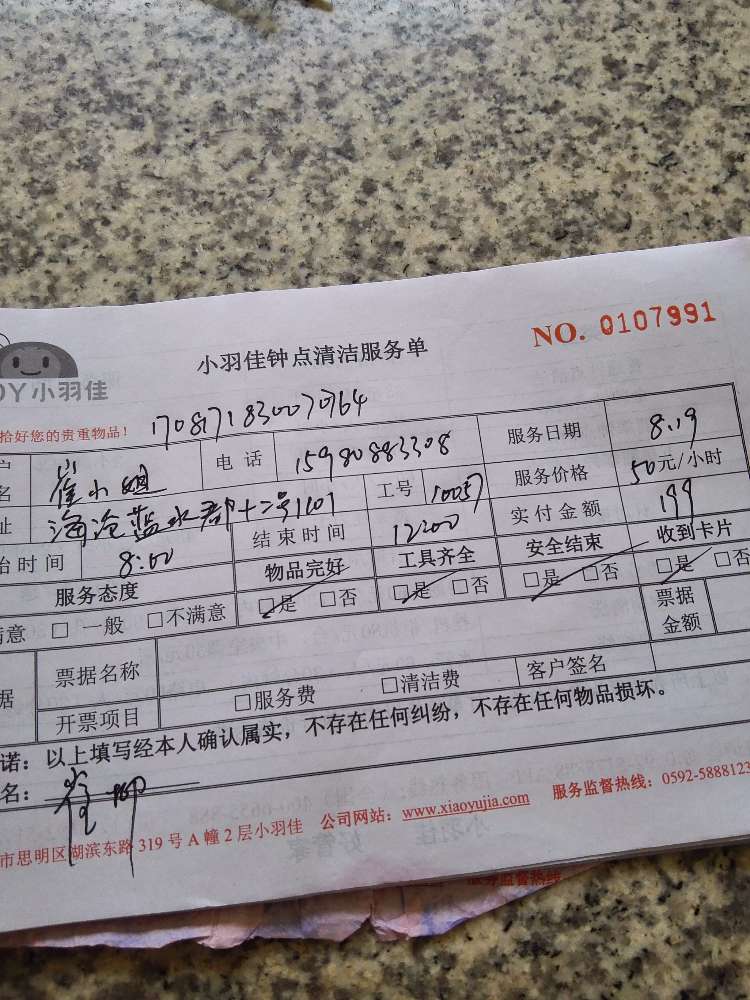 NO. 0107991
小羽佳钟点清洁服务单
小羽佳
拾好您的贵重物品!
崔小姐
电 话
15980883308
服务日期
8.19
海沧蓝水郡十二号1101
工号
10057
服务价格
50元/小时
始时间
8:00
结束时间
12:00
实付金额
199
服务态度
物品完好
工具齐全
安全结束
收到卡片
满意 □ 一般 □不满意
□是 □否
□是 □否
□是 □否
□是 □否
票据名称
票据金额
开票项目
□服务费 □清洁费
客户签名
诺:以上填写经本人确认属实,不存在任何纠纷,不存在任何物品损坏。
名:
市思明区湖滨东路319号A幢2层小羽佳 公司网站:www.xiaoyujia.com 服务监督热线:0592-5888123
服务监督热线